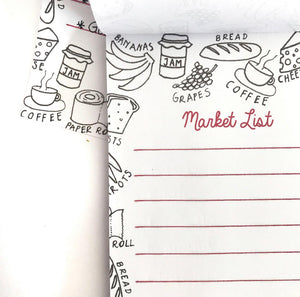 BREAD
BANANAS
JAM
JAM
GRAPES
COFFEE
CHEE
SE
COFFEE
PAPER RO
STS
Market List
ROLL
BREAD